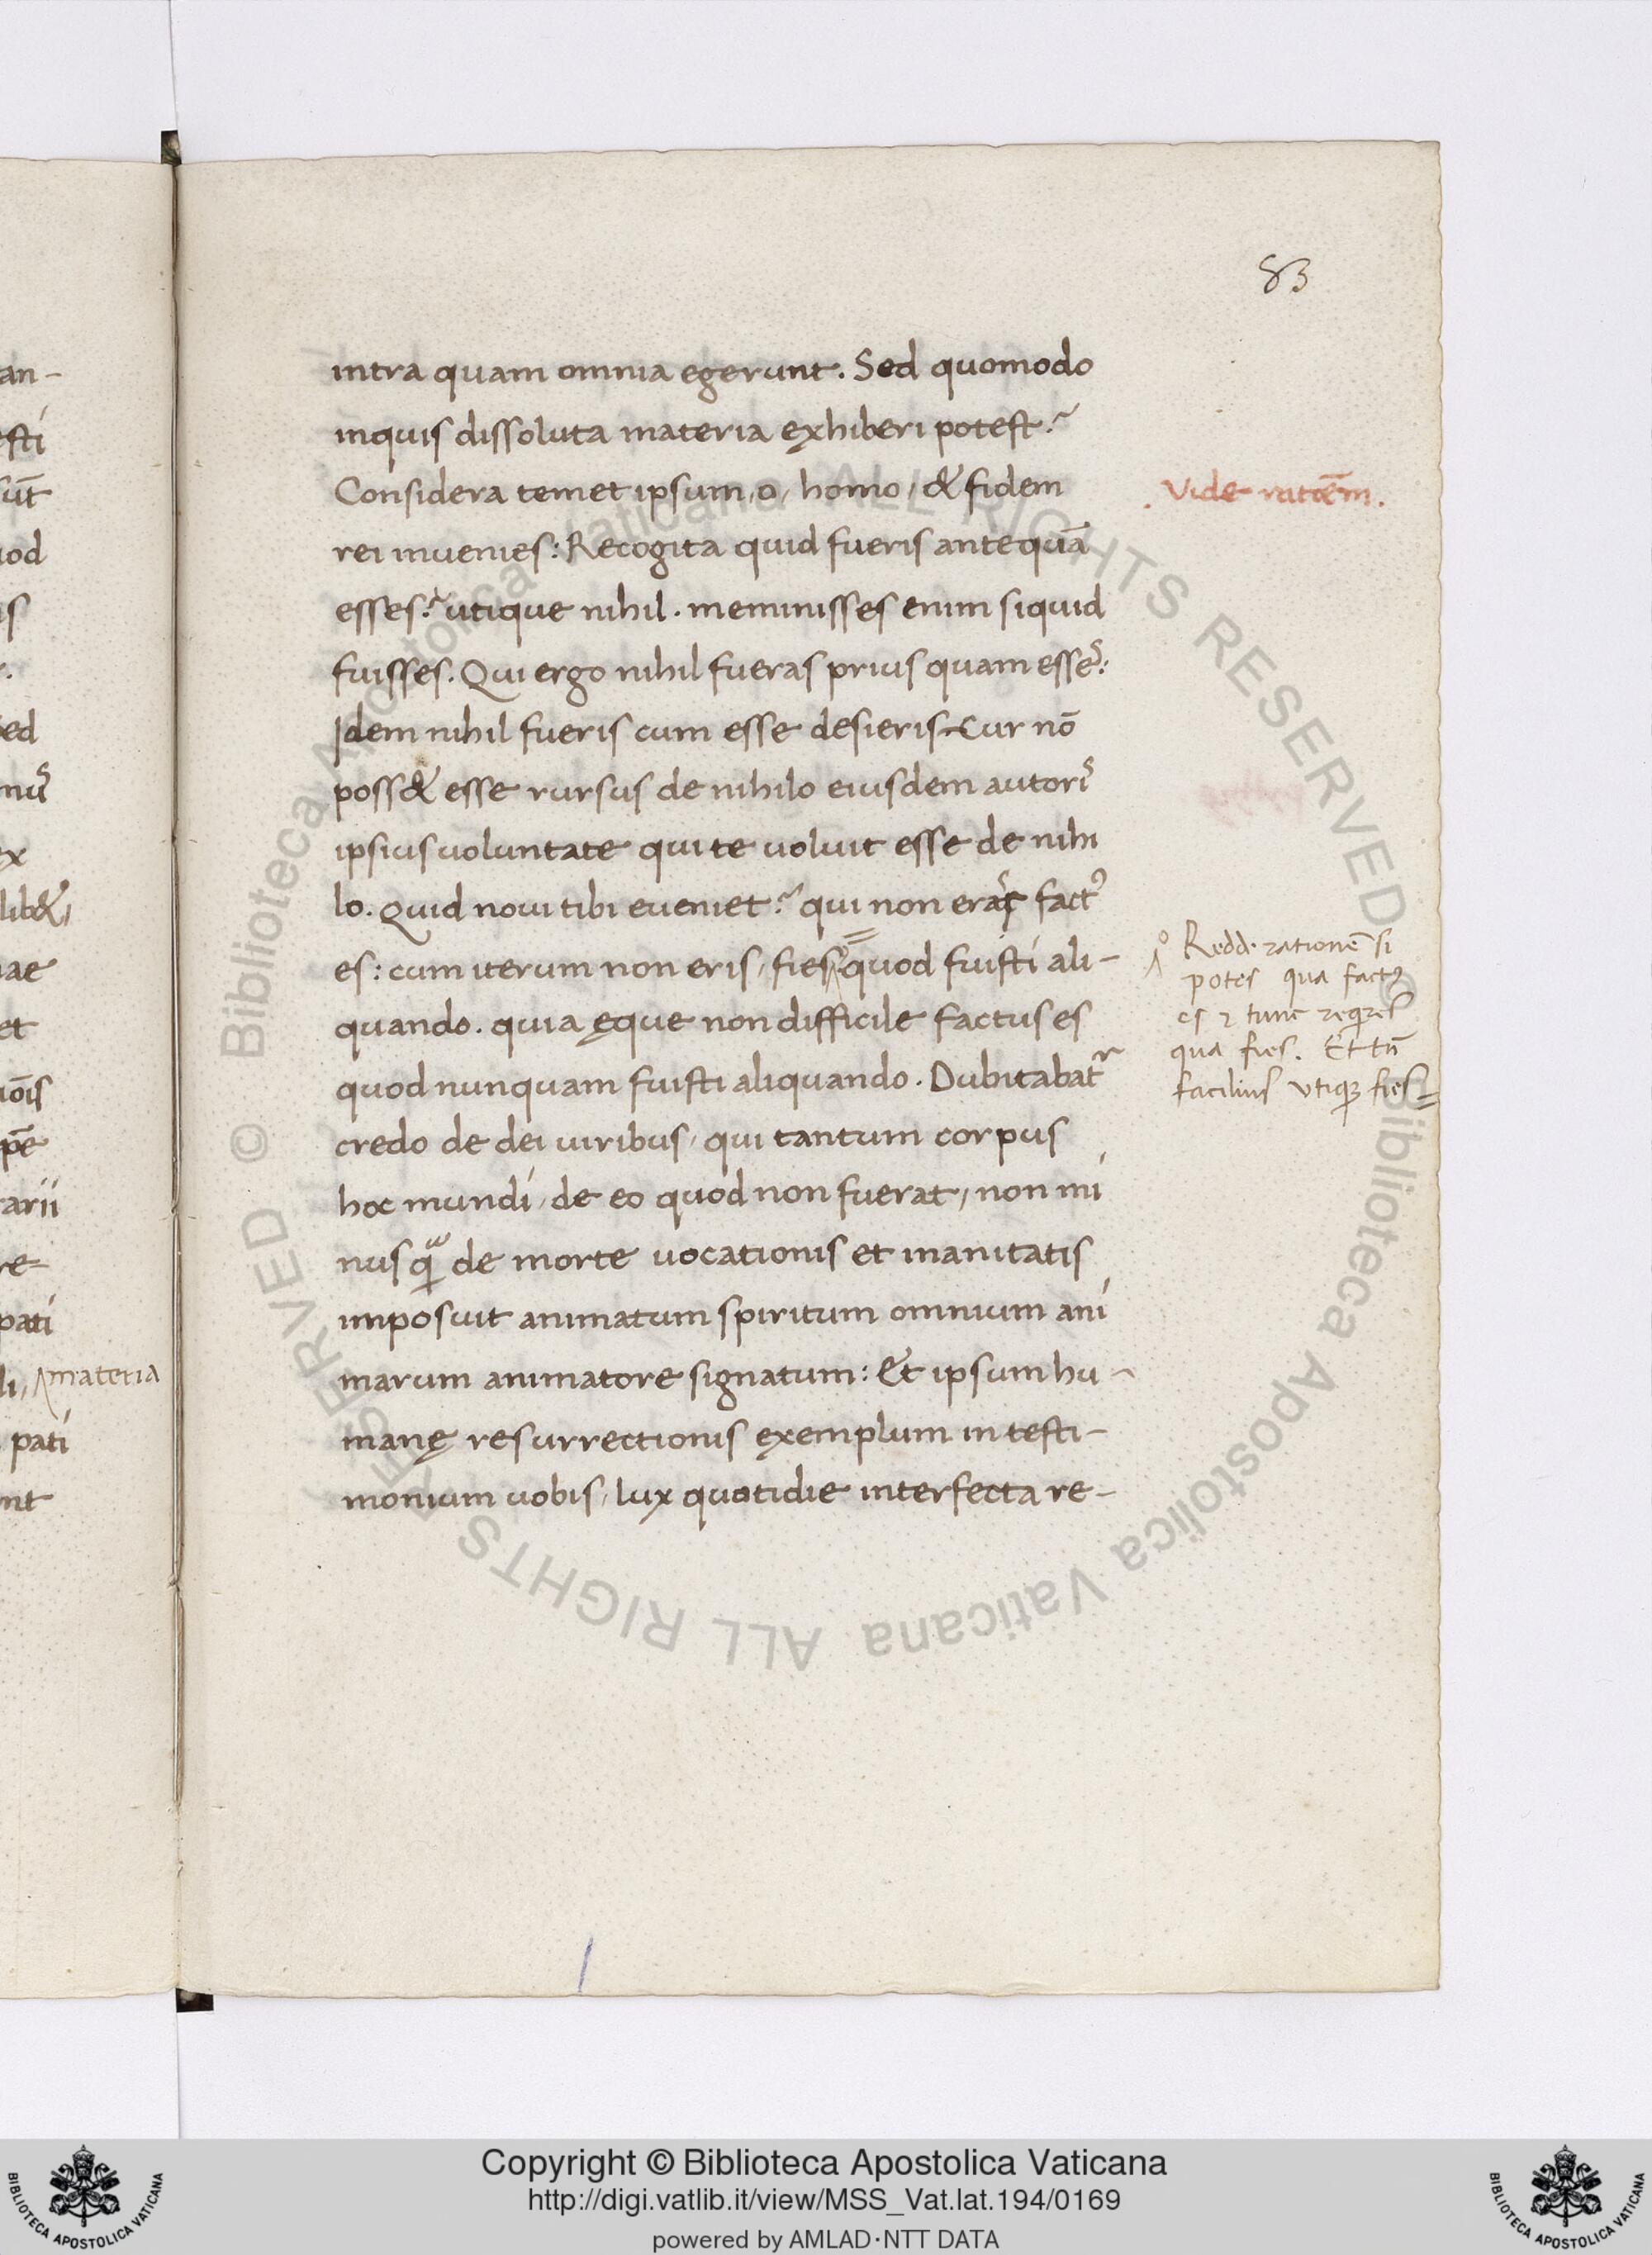 83
intra quam omnia egerunt. Sed quomodo
inquis dissoluta materia exhiberi potest?
Considera temet ipsum, o, homo, & fidem
rei inuenies: Recogita quid fueris antequā
esses? utique nihil. meminisses enim siquid
fuisses. Qui ergo nihil fueras prius quam esseˢ:
Idem nihil fueris cum esse desieris. Cur nō
poss& esse rursus de nihilo eiusdem autoriˢ
ipsius uoluntate qui te uoluit esse de nihi
lo. Quid noui tibi eueniet? qui non eras factꝰ
es: cum iterum non eris, fies quod fuisti ali-
quando. quia ęque non difficile factus es
quod nunquam fuisti aliquando. Dubitabatʳ
credo de dei uiribus, qui tantum corpus
hoc mundi, de eo quod non fuerat, non mi
nus qᵃ de morte uocationis et inanitatis
imposuit animatum spiritum omnium ani
marum animatore signatum: Et ipsum hu-
manę resurrectionis exemplum in testi-
monium uobis, lux quotidie interfecta re-
. Vide ratōem.
Redde rationē si
potes qua factꝰ
es ⁊ tunc
qua fies. Et tn̄
facilius utiqꝫ fies
an-
sti
sūt
uod
is
ed
nuˢ
ex
lib&,
uae
et
iōis
pē
rarii
re
pati
li, materia
pati
nt
© Biblioteca Apostolica Vaticana ALL RIGHTS RESERVED
© Biblioteca Apostolica Vaticana ALL RIGHTS RESERVED
Copyright © Biblioteca Apostolica Vaticana
http://digi.vatlib.it/view/MSS_Vat.lat.194/0169
powered by AMLAD·NTT DATA
BIBLIOTECA APOSTOLICA VATICANA
BIBLIOTECA APOSTOLICA VATICANA